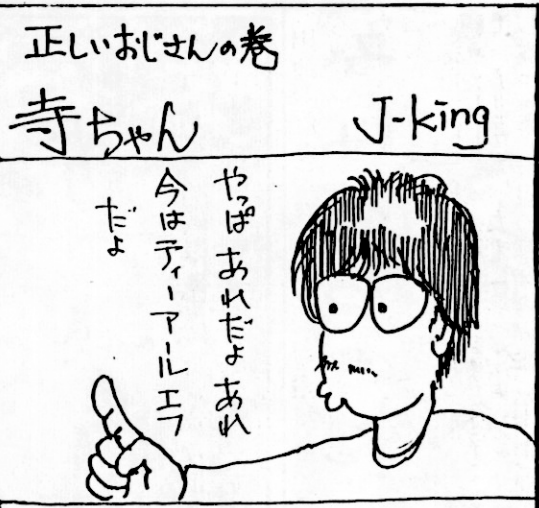 正しいおじさんの巻
寺ちゃん
J-king
やっぱ あれだよ あれ
今はティーアールエフ
だよ